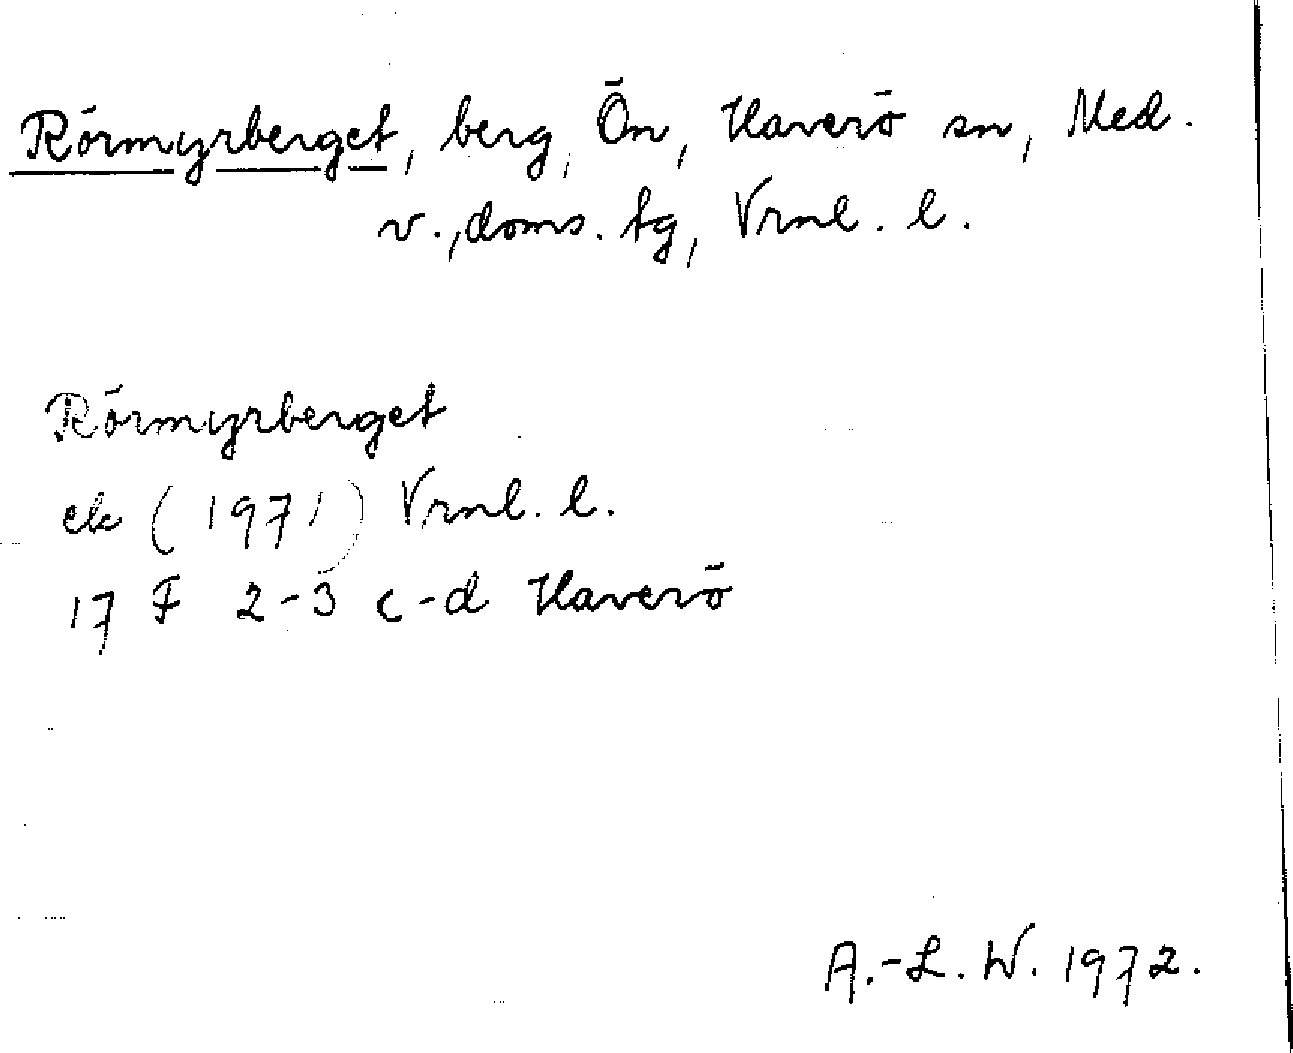 Rörmyrberget, berg, Ön, Haverö sn, Med.
v., doms. tg, Vrnl. l.
Rörmyrberget
ek (1971) Vrnl. l.
17 F 2-3 c-d Haverö
A.-L. W. 1972.